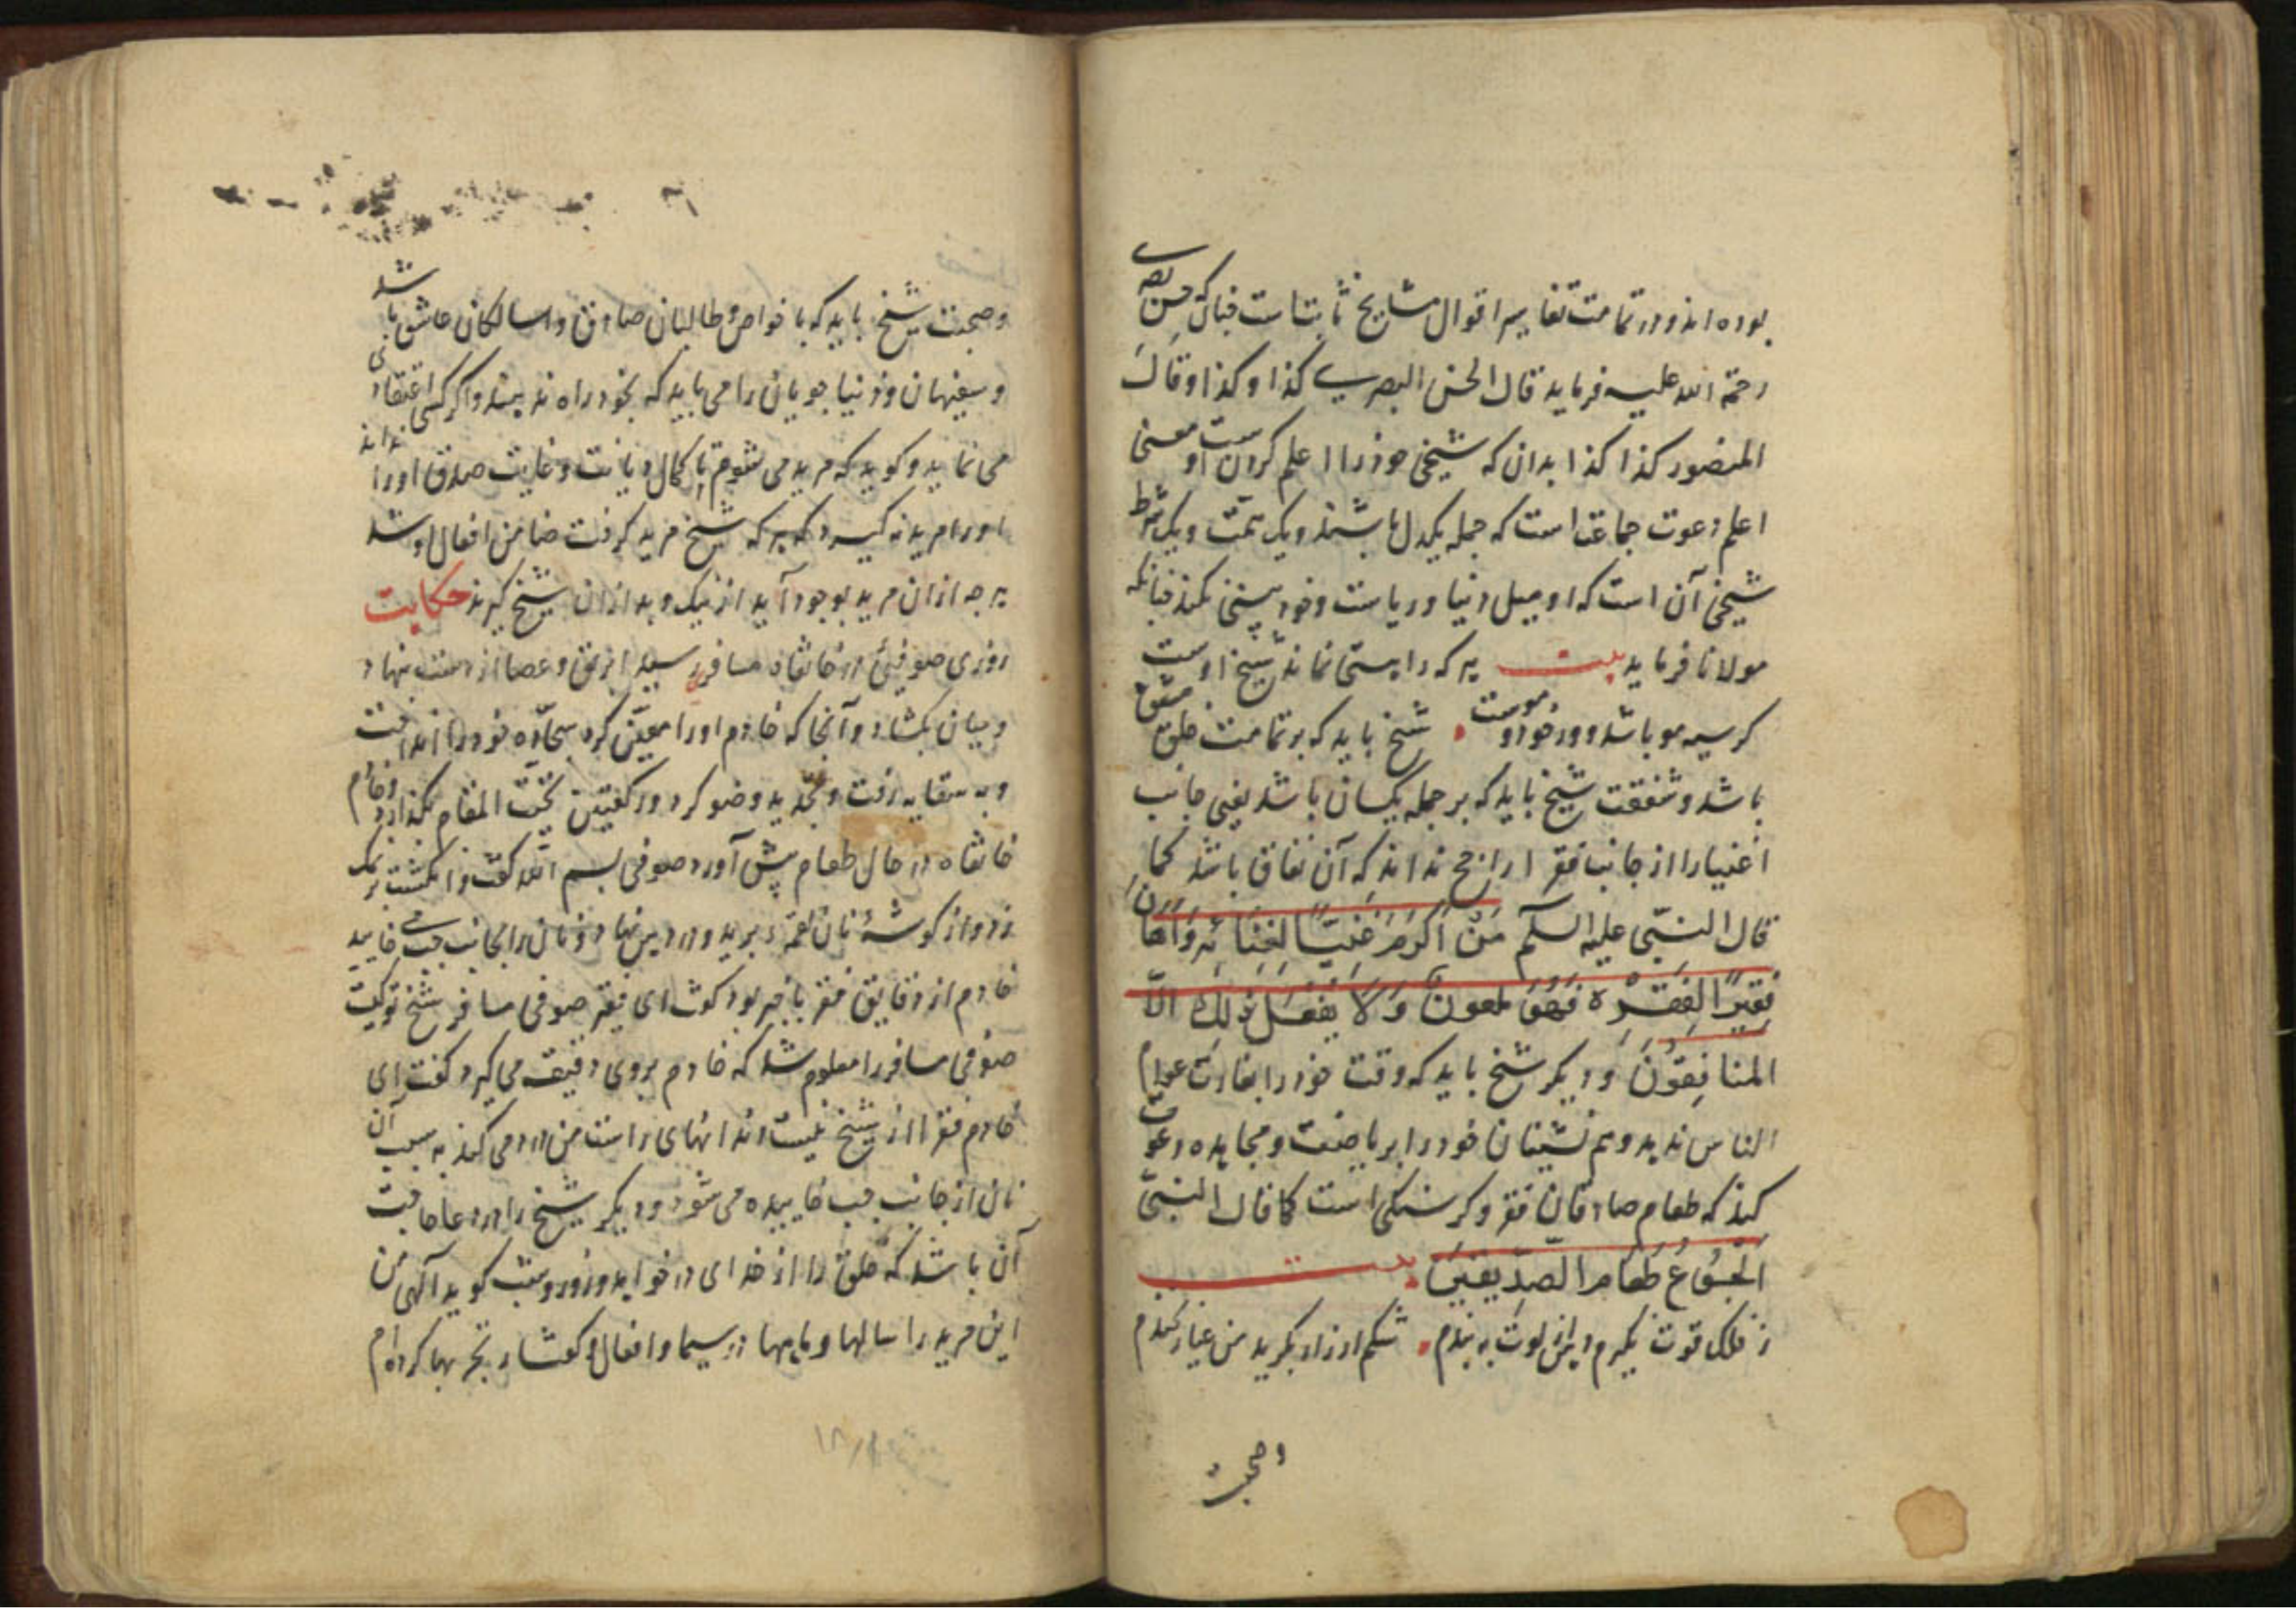 بوده اند و در تمامت تفاسیر اقوال مشایخ ثابت است چنانکه حسن بصری
رحمة الله علیه فرماید قال الحسن البصری کذا و کذا و قال
المنصور کذا کذا بدان که شیخی خود را علم کردن است و معنی
علم دعوت جماعت است که جمله یکدل باشند و یک همت و یک شرط
شیخی آن است که او میل دنیا و ریاست و خود بینی نکند چنانکه
مولانا فرماید بیت هر که را هستی نماند شیخ اوست
کر سیه مو باشد و در خود او موست شیخ باید که بر تمامت خلق مشفق
باشد و شفقت شیخ باید که بر جمله یکسان باشد یعنی جانب
اغنیا را از جانب فقرا راجح نداند که آن نفاق باشد کما
قال النبی علیه السلم مَنْ اَکْرَمَ غَنِیًّا لِغِنَائِهِ وَاَهَانَ
فَقِیرًا لِفَقْرِهِ فَهُوَ ملعون وَلَا یَفْعَلُ ذٰلِكَ اِلَّا
المنافِقُونَ و دیکر شیخ باید که وقت خود را بغارت عوام
الناس ندهد و هم نشینان خود را بریاضت و مجاهده دعوت
کند که طعام صادقان فقر و کرسنکی است کما قال النبی
اَلْجُوعُ طَعَامُ الصِّدِّیقِینَ بیت
ز فلک قوت بکیرم دهن از لوت به بندم شکم ار زار بکرید من عیار بخندم
وصحبت
وصحبت شیخ باید که با خواص و طالبان صادق و سالکان عاشق باشد
و سفیهان و دنیا جویان را می باید که بخود راه ندهد و اکر کسی اعتقادی
می نماید و کوید که مرید می شوم با کمال دیانت و غایت صدق او را نداند
او را مرید نه کیرد که هر که شیخ مرید کرفت ضامن افعال او شد
هر چه از ان مرید بوجود آید از نیک و بد از ان شیخ کیرند حکایت
روزی صوفیئ در خانقاه مسافر رسید ابریق و عصا از دست نهاد
و میان بکشاد و آنجا که خادم او را معین کرد سجّاده خود را انداخت
و به سقایه رفت و تجدید وضو کرد و رکعتین تحیّت المقام بکذارد و خادم
خانقاه در حال طعام پیش آورد صوفی بسم الله کفت و انکشت بر نمک
زد و از کوشهٔ نان لقمه برید و در دهن نهاد و نان را بجانب چپ می خایید
خادم از دقایق فقر باخبر بود کفت ای فقیر صوفی مسافر شیخ تو کیست
صوفی مسافر را معلوم شد که خادم بروی دقیقه می کیرد کفت ای
خادم فقرا از شیخ نیست دندانهای راست من درد می کند به سبب آن
نان از جانب چپ خاییده می شود و دیکر شیخ را در دعا حاجت
آن باشد که خلق را از خدای در خواهد و روز و شب کوید الهی من
این مرید را سالها و ماهها در سیما و افعال و کفتار تجربها کرده ام